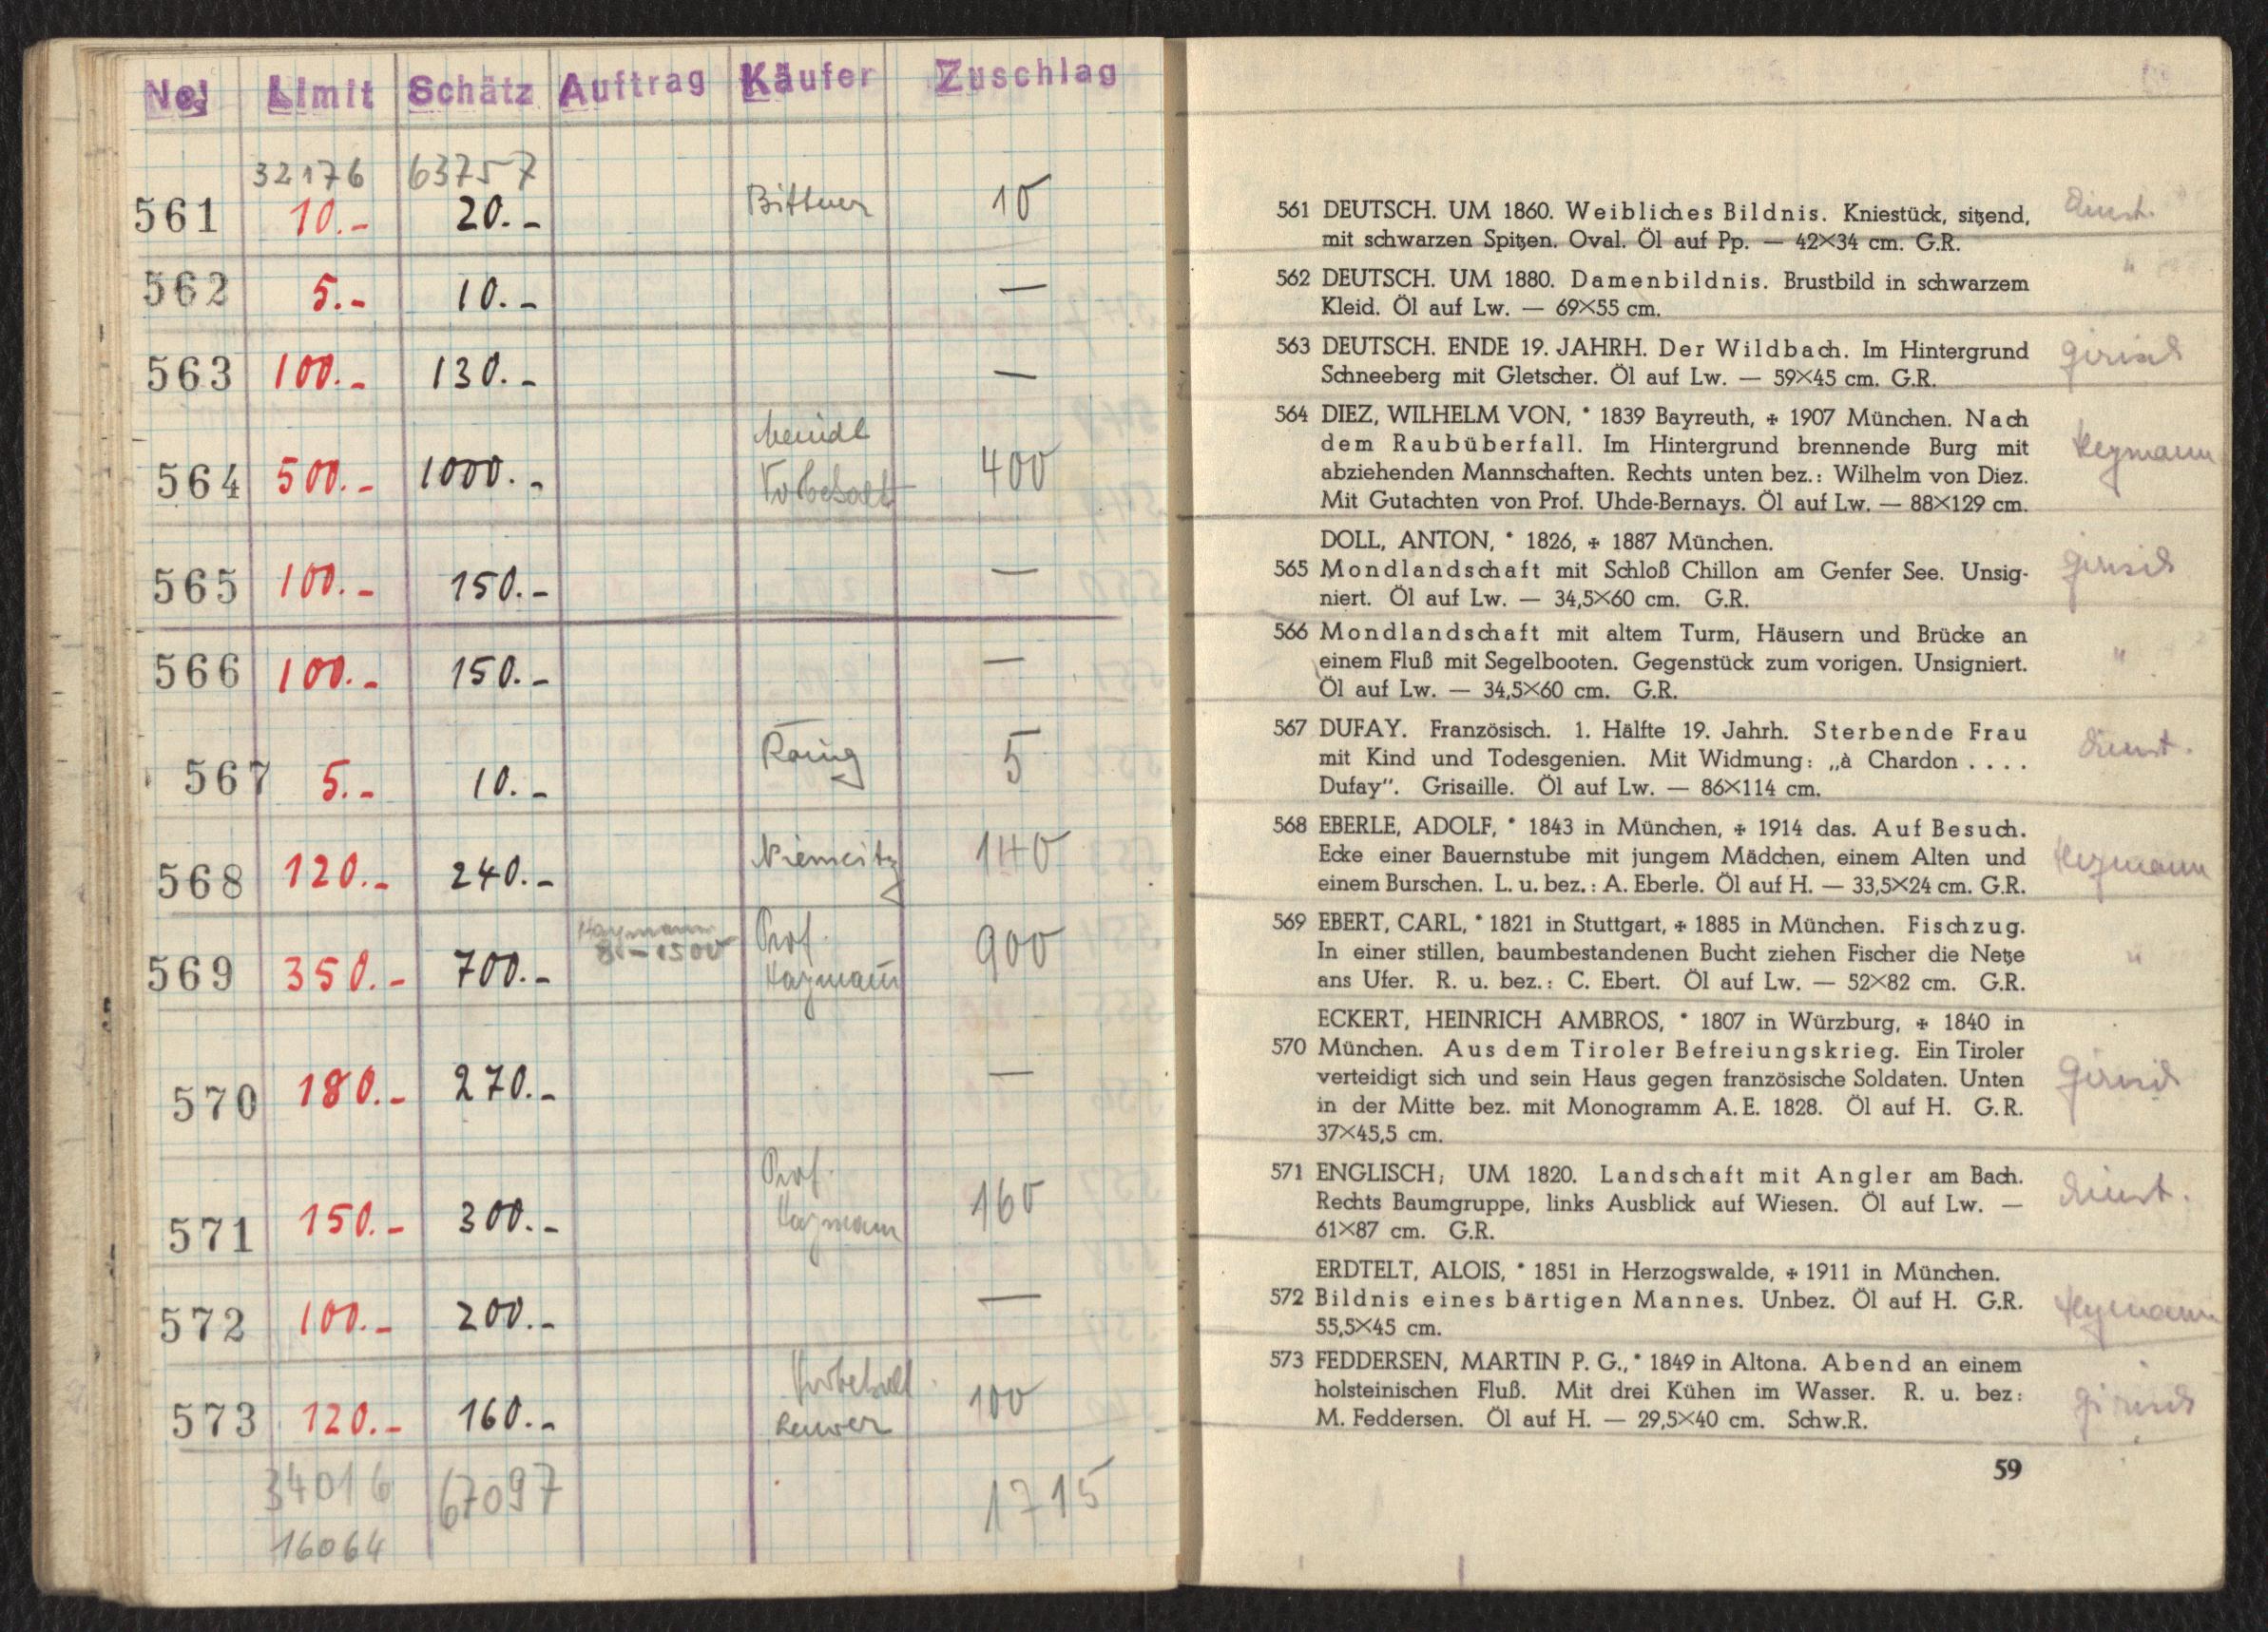 No. Limit Schätz Auftrag Käufer Zuschlag
32176 63757
561 10.- 20.- Bittner 10
562 5.- 10.- —
563 100.- 130.- —
564 500.- 1000.- 400
565 100.- 150.- —
566 100.- 150.- —
567 5.- 10.- König 5
568 120.- 240.- Niemeitz 140
569 350.- 700.- Prof. 900
570 180.- 270.- —
571 150.- 300.- Prof. 160
572 100.- 200.- —
Vorbehalt
573 120.- 160.- 100
34016 67097 1715
16064
561 DEUTSCH. UM 1860. Weibliches Bildnis. Kniestück, sitzend,
mit schwarzen Spitzen. Oval. Öl auf Pp. — 42×34 cm. G.R.
562 DEUTSCH. UM 1880. Damenbildnis. Brustbild in schwarzem "
Kleid. Öl auf Lw. — 69×55 cm.
563 DEUTSCH. ENDE 19. JAHRH. Der Wildbach. Im Hintergrund
Schneeberg mit Gletscher. Öl auf Lw. — 59×45 cm. G.R.
564 DIEZ, WILHELM VON, * 1839 Bayreuth, ✠ 1907 München. Nach
dem Raubüberfall. Im Hintergrund brennende Burg mit Heymann
abziehenden Mannschaften. Rechts unten bez.: Wilhelm von Diez.
Mit Gutachten von Prof. Uhde-Bernays. Öl auf Lw. — 88×129 cm.
DOLL, ANTON, * 1826, ✠ 1887 München.
565 Mondlandschaft mit Schloß Chillon am Genfer See. Unsig-
niert. Öl auf Lw. — 34,5×60 cm. G.R.
566 Mondlandschaft mit altem Turm, Häusern und Brücke an
einem Fluß mit Segelbooten. Gegenstück zum vorigen. Unsigniert. "
Öl auf Lw. — 34,5×60 cm. G.R.
567 DUFAY. Französisch. 1. Hälfte 19. Jahrh. Sterbende Frau
mit Kind und Todesgenien. Mit Widmung: „à Chardon . . . .
Dufay“. Grisaille. Öl auf Lw. — 86×114 cm.
568 EBERLE, ADOLF, * 1843 in München, ✠ 1914 das. Auf Besuch.
Ecke einer Bauernstube mit jungem Mädchen, einem Alten und Heymann
einem Burschen. L. u. bez.: A. Eberle. Öl auf H. — 33,5×24 cm. G.R.
569 EBERT, CARL, * 1821 in Stuttgart, ✠ 1885 in München. Fischzug.
In einer stillen, baumbestandenen Bucht ziehen Fischer die Netze "
ans Ufer. R. u. bez.: C. Ebert. Öl auf Lw. — 52×82 cm. G.R.
ECKERT, HEINRICH AMBROS, * 1807 in Würzburg, ✠ 1840 in
570 München. Aus dem Tiroler Befreiungskrieg. Ein Tiroler
verteidigt sich und sein Haus gegen französische Soldaten. Unten
in der Mitte bez. mit Monogramm A. E. 1828. Öl auf H. G.R.
37×45,5 cm.
571 ENGLISCH; UM 1820. Landschaft mit Angler am Bach.
Rechts Baumgruppe, links Ausblick auf Wiesen. Öl auf Lw. —
61×87 cm. G.R.
ERDTELT, ALOIS, * 1851 in Herzogswalde, ✠ 1911 in München.
572 Bildnis eines bärtigen Mannes. Unbez. Öl auf H. G.R. Heymann
55,5×45 cm.
573 FEDDERSEN, MARTIN P. G., * 1849 in Altona. Abend an einem
holsteinischen Fluß. Mit drei Kühen im Wasser. R. u. bez:
M. Feddersen. Öl auf H. — 29,5×40 cm. Schw.R.
59